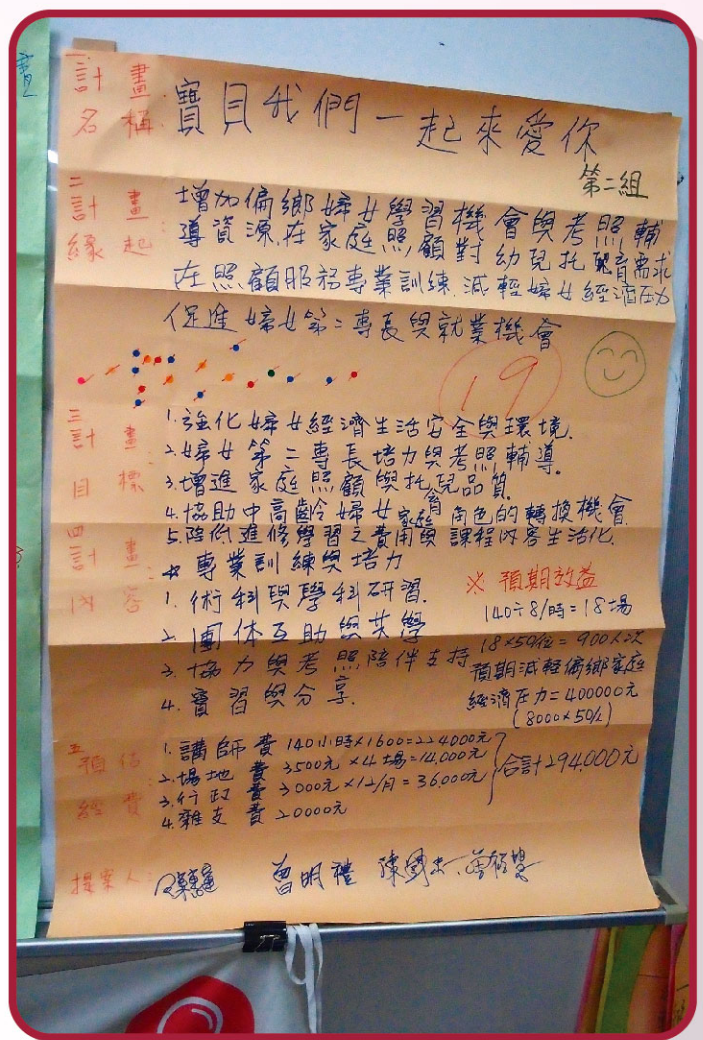 一.計畫名稱: 寶貝我們一起來愛你
第二組
二.計畫緣起: 增加偏鄉婦女學習機會與考照輔
導資源.在家庭照顧對幼兒托育需求
在照顧服務專業訓練.減輕婦女經濟壓力
促進婦女第二專長與就業機會
19
三.計畫目標
1.強化婦女經濟生活安全與環境.
2.婦女第二專長培力與考照輔導.
3.增進家庭照顧與托育品質
4.協助中高齡婦女家庭角色的轉換機會.
5.陪伴進修學習之費用與課程內容生活化.
四.計畫內容:
專業訓練與培力
1.術科與學科研習.
2.團体互助與共學
3.協力與考照陪伴支持
4.實習與分享.
※預期效益
140÷8/時=18場
18×50/位=900人次
預期減輕偏鄉家庭
經濟压力=400000元
(8000×50/人)
五.預估經費
1.講師費 140小時×1600=224000元
2.場地費 3500元×4場=14,000元
3.行政費 3000元×12/月=36,000元
4.雜支費 20000元
合計294,000元
提案人: 曾明禮 陳國